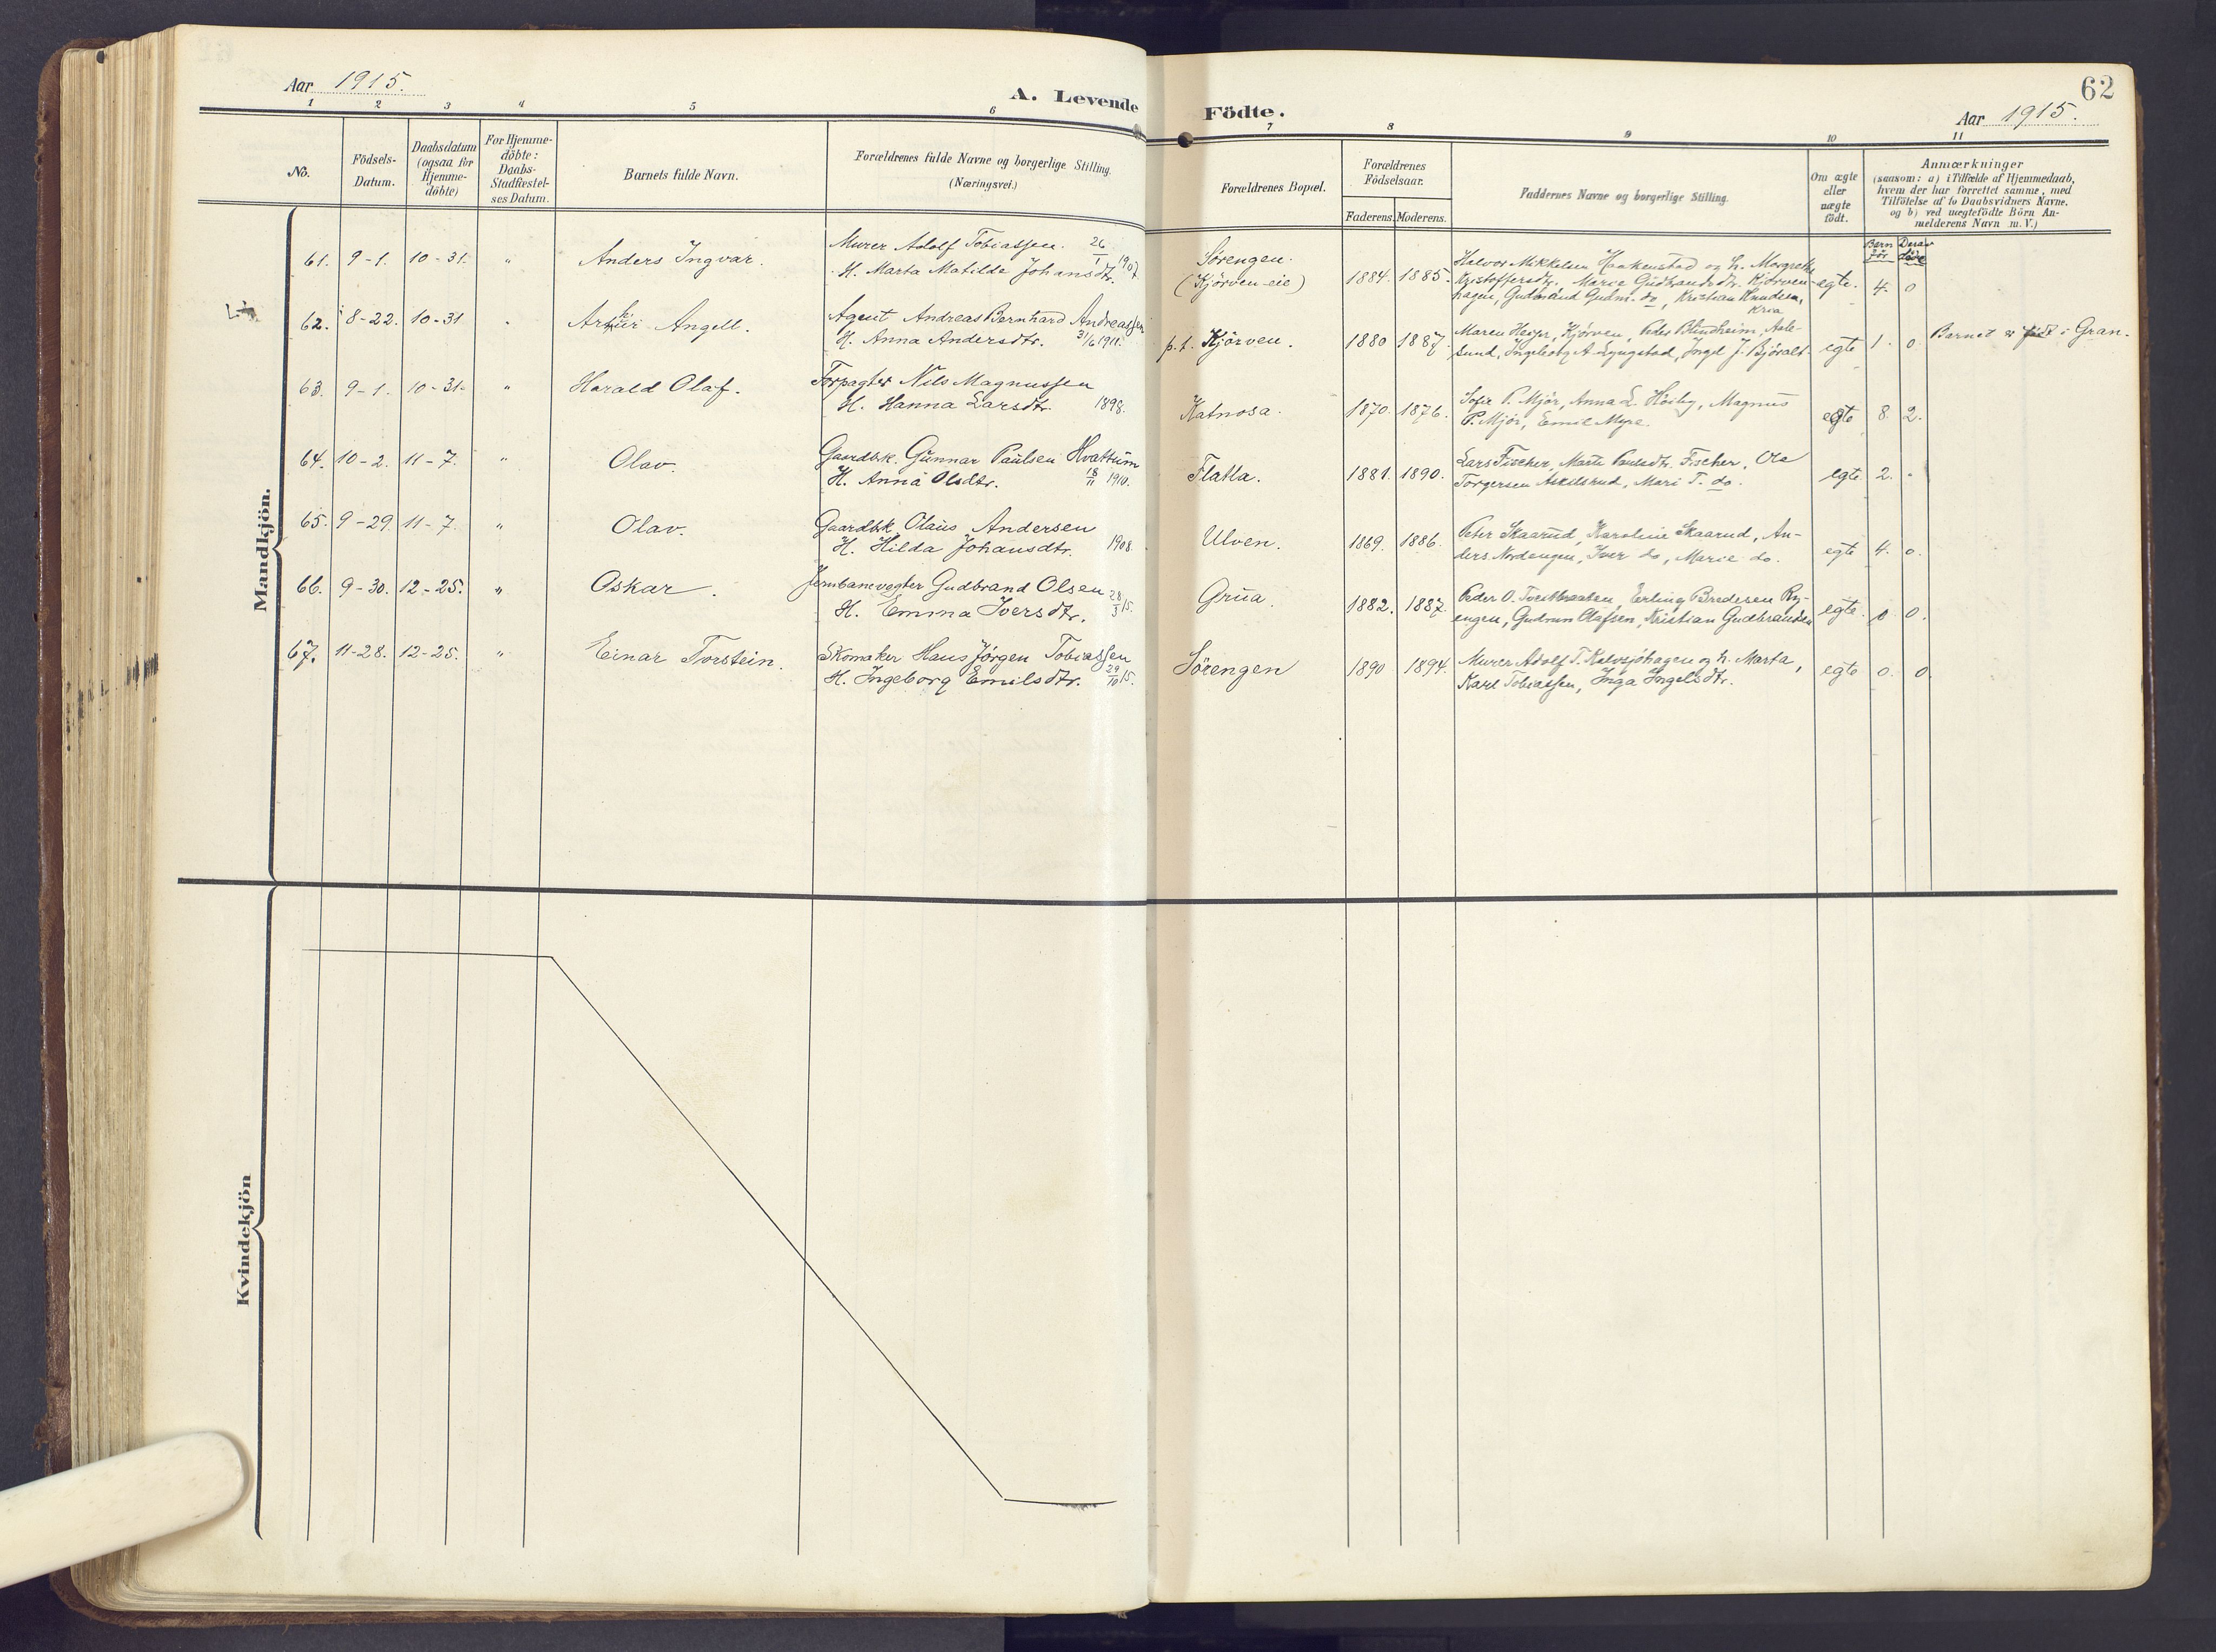 62
Aar 1915.
A. Levende Födte.
Aar 1915.
1 2 3 4 5 6 7 8 9 10 11
No.
Födsels-
Datum.
Daabsdatum
(ogsaa for
Hjemme-
döbte)
For Hjemme-
döbte:
Daabs-
Stadfæstel-
ses Datum.
Barnets fulde Navn.
Forældrenes fulde Navne og borgerlige Stilling.
(Næringsvei.)
Forældrenes Bopæl.
Forældrenes
Födselsaar.
Faderens. Moderens.
Faddernes Navne og borgerlige Stilling.
Om ægte
eller
uægte
født.
Anmærkninger
(saasom: a) i Tilfælde af Hjemmedaab,
hvem der har forrettet samme, med
Tilföielse af to Daabsvidners Navne.
og b) ved uægtefödte Börn An-
melderens Navn m. V.)
Barn før Derav døde
Mandkjön.
61. 9-1. 10-31. " Anders Ingvar.
Murer Adolf Tobiassen. 26/1 1907
H. Marta Matilde Johansdtr.
Sørengen.
(Kjörven-eie)
1884. 1885.
Halvor Mikkelsen Haakenstad og h. Margrethe
Kristoffersdtr., Marie Gudbrandsdtr. Kjørven-
hagen, Gudbrand Gudm. do, Kristian Knudsen,
Kria
egte. 4. 0
62. 8-22. 10-31 " Arthur Angell.
Agent Andreas Bernhard Andreassen
H. Anna Andersdtr. 3/6 1911.
p.t. Kjörven.
1880 1887.
Maren Heyer, Kjørven, Peder Blindheim, Aale-
sund, Ingeborg A. Lyngstad, Ingel J. Björalt.
egte 1. 0
Barnet er født i Gran.
63. 9-1. 10-31. " Harald Olaf.
Forpagter Nils Magnussen
H. Hanna Larsdtr. 1898.
Katnosa.
1870. 1876.
Sofie P. Mjör, Anna L. Höiby, Magnus
P. Mjör, Emil Myre.
egte 8. 2.
64. 10-2. 11-7. " Olav.
Gaardbk. Gunnar Paulsen Hvattum
H. Anna Olsdtr. 18/11 1910.
Flatla.
1881. 1890.
Lars Fischer, Marte Paulsdtr. Fischer, Ole
Torgersen Askilsrud, Mari T. do.
egte 2. -
65. 9-29. 11-7. " Olav.
Gaardbk. Olaus Andersen
H. Hilda Johansdtr. 1908.
Ulven.
1869. 1886.
Peter Skaarud, Karoline Skaarud, An-
ders Nordengen, Iver do, Marie do.
egte 4. 0.
66. 9-30. 12-25. " Oskar.
Jernbanevogter Gudbrand Olsen
H. Emma Iversdtr. 28/3 15.
Grua.
1882. 1887.
Peder O. Tveitbraaten, Erling Bredesen Ry-
engen, Gudrun Olafsen, Kristian Gudbrandsen
egte. 0 0.
67. 11-28. 12-25. " Einar Torstein.
Skomaker Hans Jörgen Tobiassen
H. Ingeborg Emilsdtr. 29/10 15.
Sörengen
1890 1894.
Murer Adolf T. Kalvsjöhagen og h. Marta,
Karl Tobiassen, Inga Ingelsdtr.
egte 0. 0.
Kvindekjön